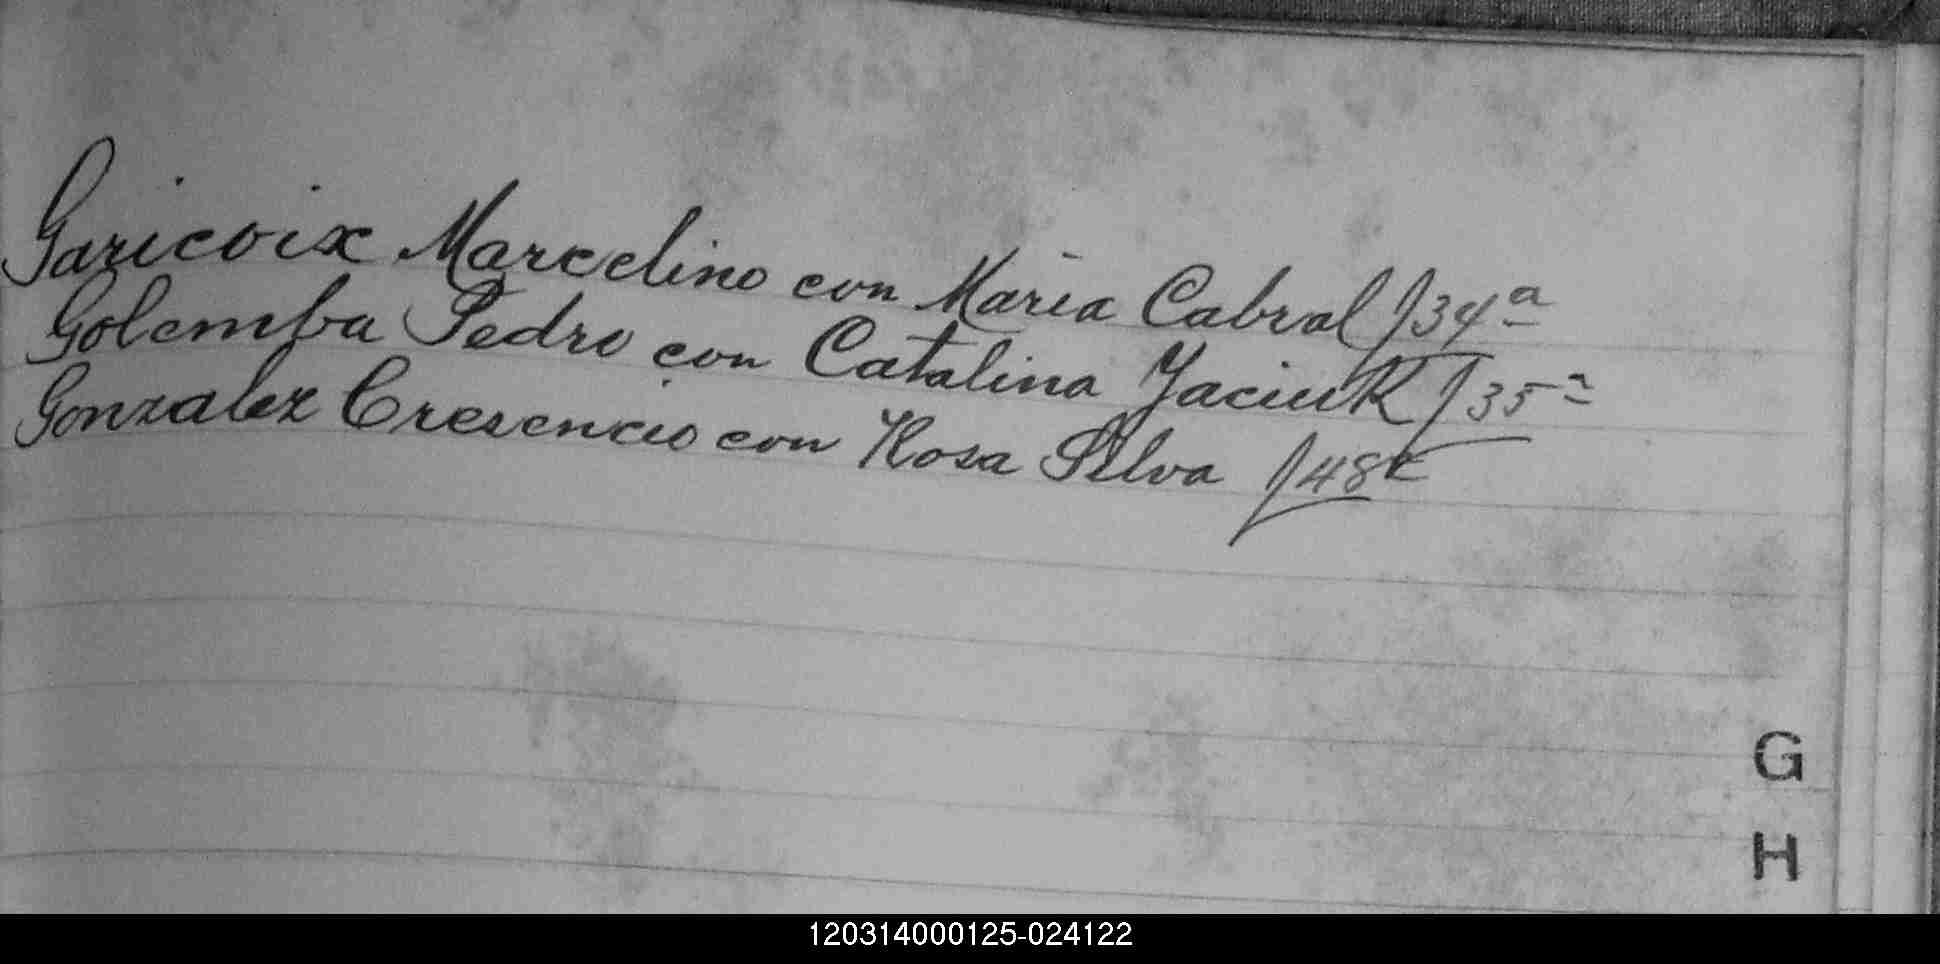 Garicoix Marcelino con Maria Cabral f 34ª
Golemba Pedro con Catalina Jaciuk f 35ª
Gonzalez Cresencio con Rosa Silva f 48
G
H
120314000125-024122